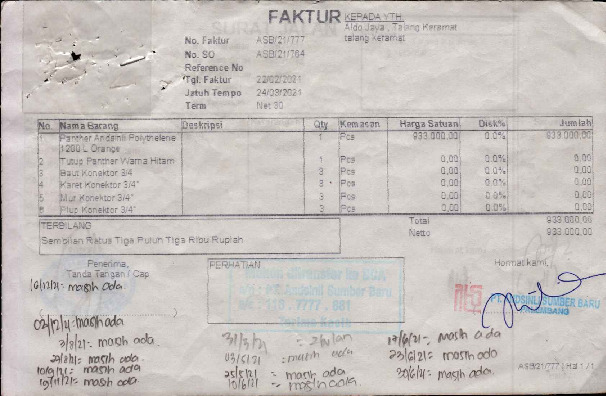 FAKTUR
KEPADA YTH.
Aldo Jaya, Talang Keramat
talang keramat
No. Faktur ASB/21/777
No. SO ASB/21/764
Reference No
Tgl. Faktur 22/02/2021
Jatuh Tempo 24/03/2021
Term Net 30
No. Nama Barang Deskripsi Qty Kemasan Harga Satuan Disk% Jumlah
Panther Andsinli Polythelene 1 Pcs 933.000,00 0.0% 933.000,00
1200 L Orange
2 Tutup Panther Warna Hitam 1 Pcs 0,00 0.0% 0.00
3 Baut Konektor 3/4 3 Pcs 0,00 0.0% 0.00
4 Karet Konektor 3/4" 3 Pcs 0,00 0.0% 0.00
5 Mur Konektor 3/4" 3 Pcs 0,00 0.0% 0.00
6 Plup Konektor 3/4" 3 Pcs 0,00 0.0% 0.00
TERBILANG
Sembilan Ratus Tiga Puluh Tiga Ribu Rupiah
Total 933.000,00
Netto 933.000,00
Penerima,
Tanda Tangan / Cap
PERHATIAN
Hormat kami,
PT. ANDSINLI SUMBER BARU
PALEMBANG
16/12/21 = masih ada.
02/12/21 = masih ada
masih ada.
masih ada.
10/9/21 = masih ada
19/11/21 = masih ada
31/3/21 =
03/5/21 = masih ada
25/5/21 = masih ada
10/6/21 = masih ada.
17/6/21 = masih ada
23/6/21 = masih ada
30/6/21 = masih ada.
ASB/21/777 | Hal 1 / 1